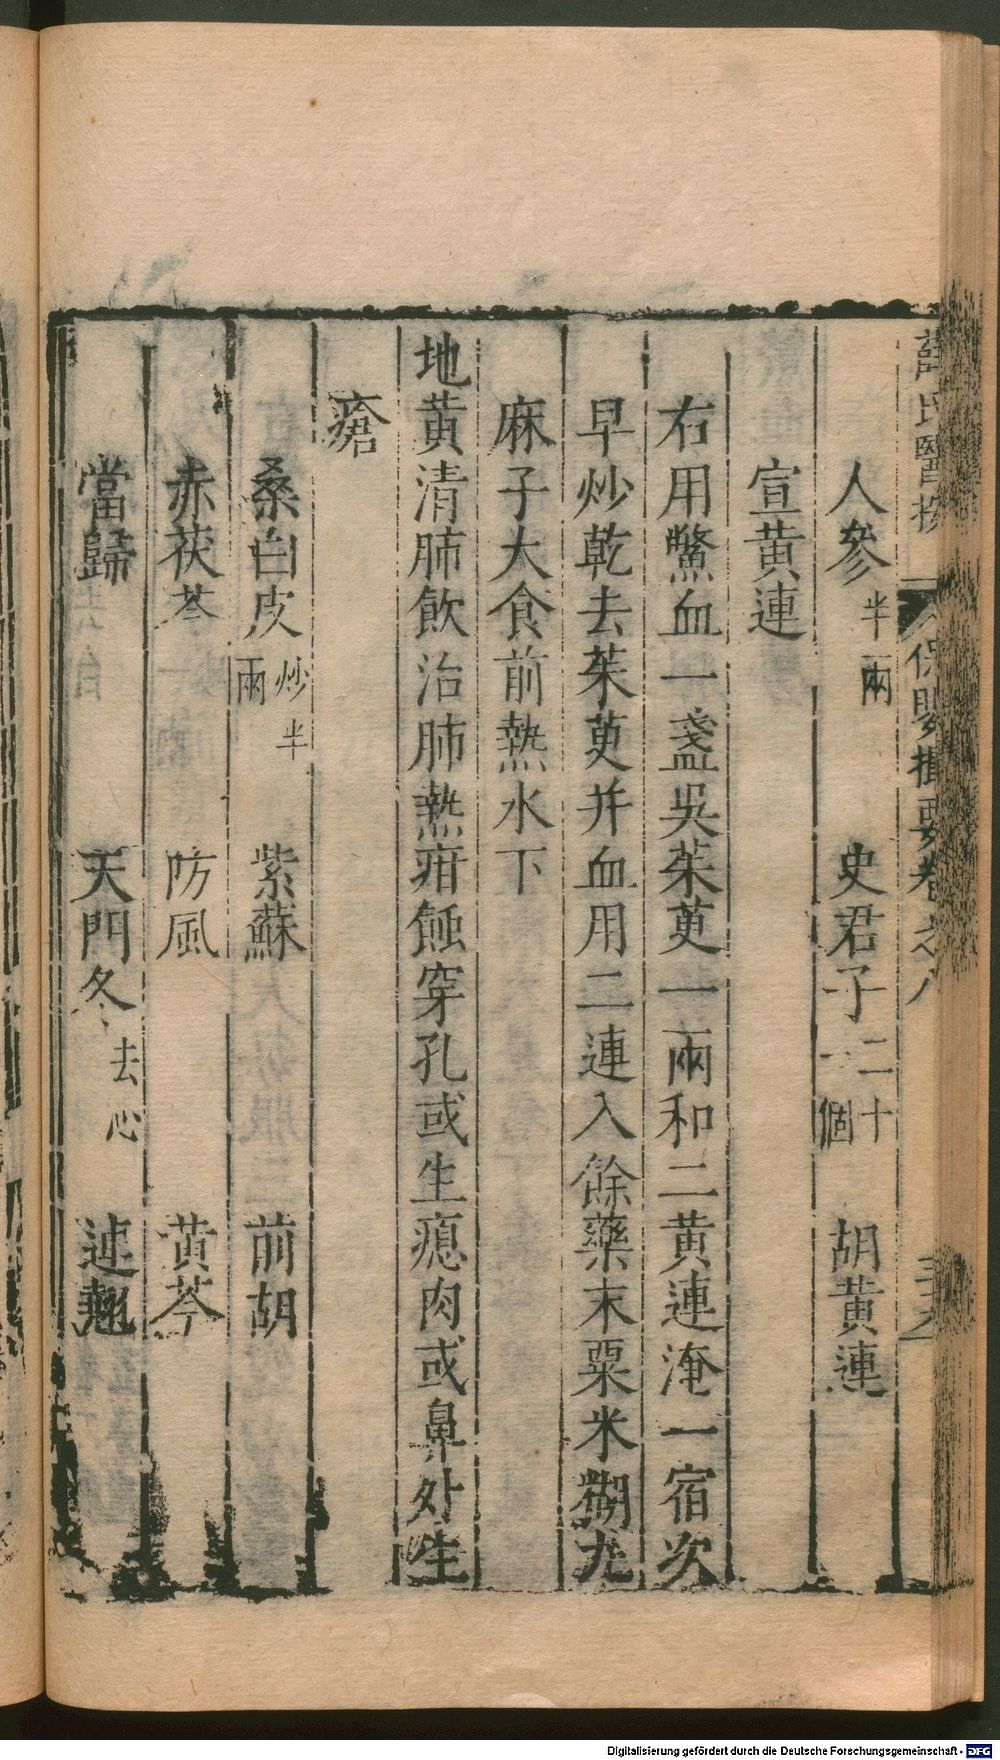 薛氏醫按 保嬰撮要卷之八
人參半兩 史君子二十一個 胡黃連
宣黃連
右用鱉血一盞吳茱萸一兩和二黃連淹一宿次
早炒乾去茱萸并血用二連入餘藥末粟米糊丸
麻子大食前熱水下
地黃清肺飲治肺熱疳蝕穿孔或生瘜肉或鼻外生
瘡
桑白皮炒半兩 紫蘇 前胡
赤茯苓 防風 黃芩
當歸 天門冬去心 連翹
Digitalisierung gefördert durch die Deutsche Forschungsgemeinschaft - DFG